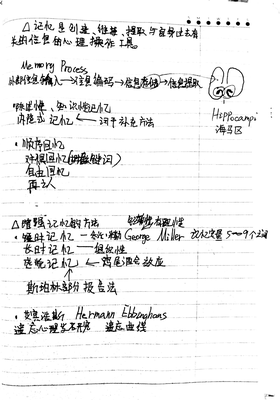 △记忆是创造、维持、提取与自身过去有
关的信息的心理操作工具。
Memory Process
外部信息输入→信息编码→信息存储→信息提取
Hippocampi
海马区
陈述性、知识性记忆
内隐式记忆 ← 词干补充方法
· 顺序回忆
对偶回忆(关键词)
自由回忆
再认
△增强记忆的方法
· 短时记忆 George Miller 记忆容量 5~9个之间
长时记忆 — 组织性
感觉记忆 ← 鸡尾酒会效应
斯珀林部分报告法
· 艾宾浩斯 Hermann Ebbinghaus
遗忘曲线